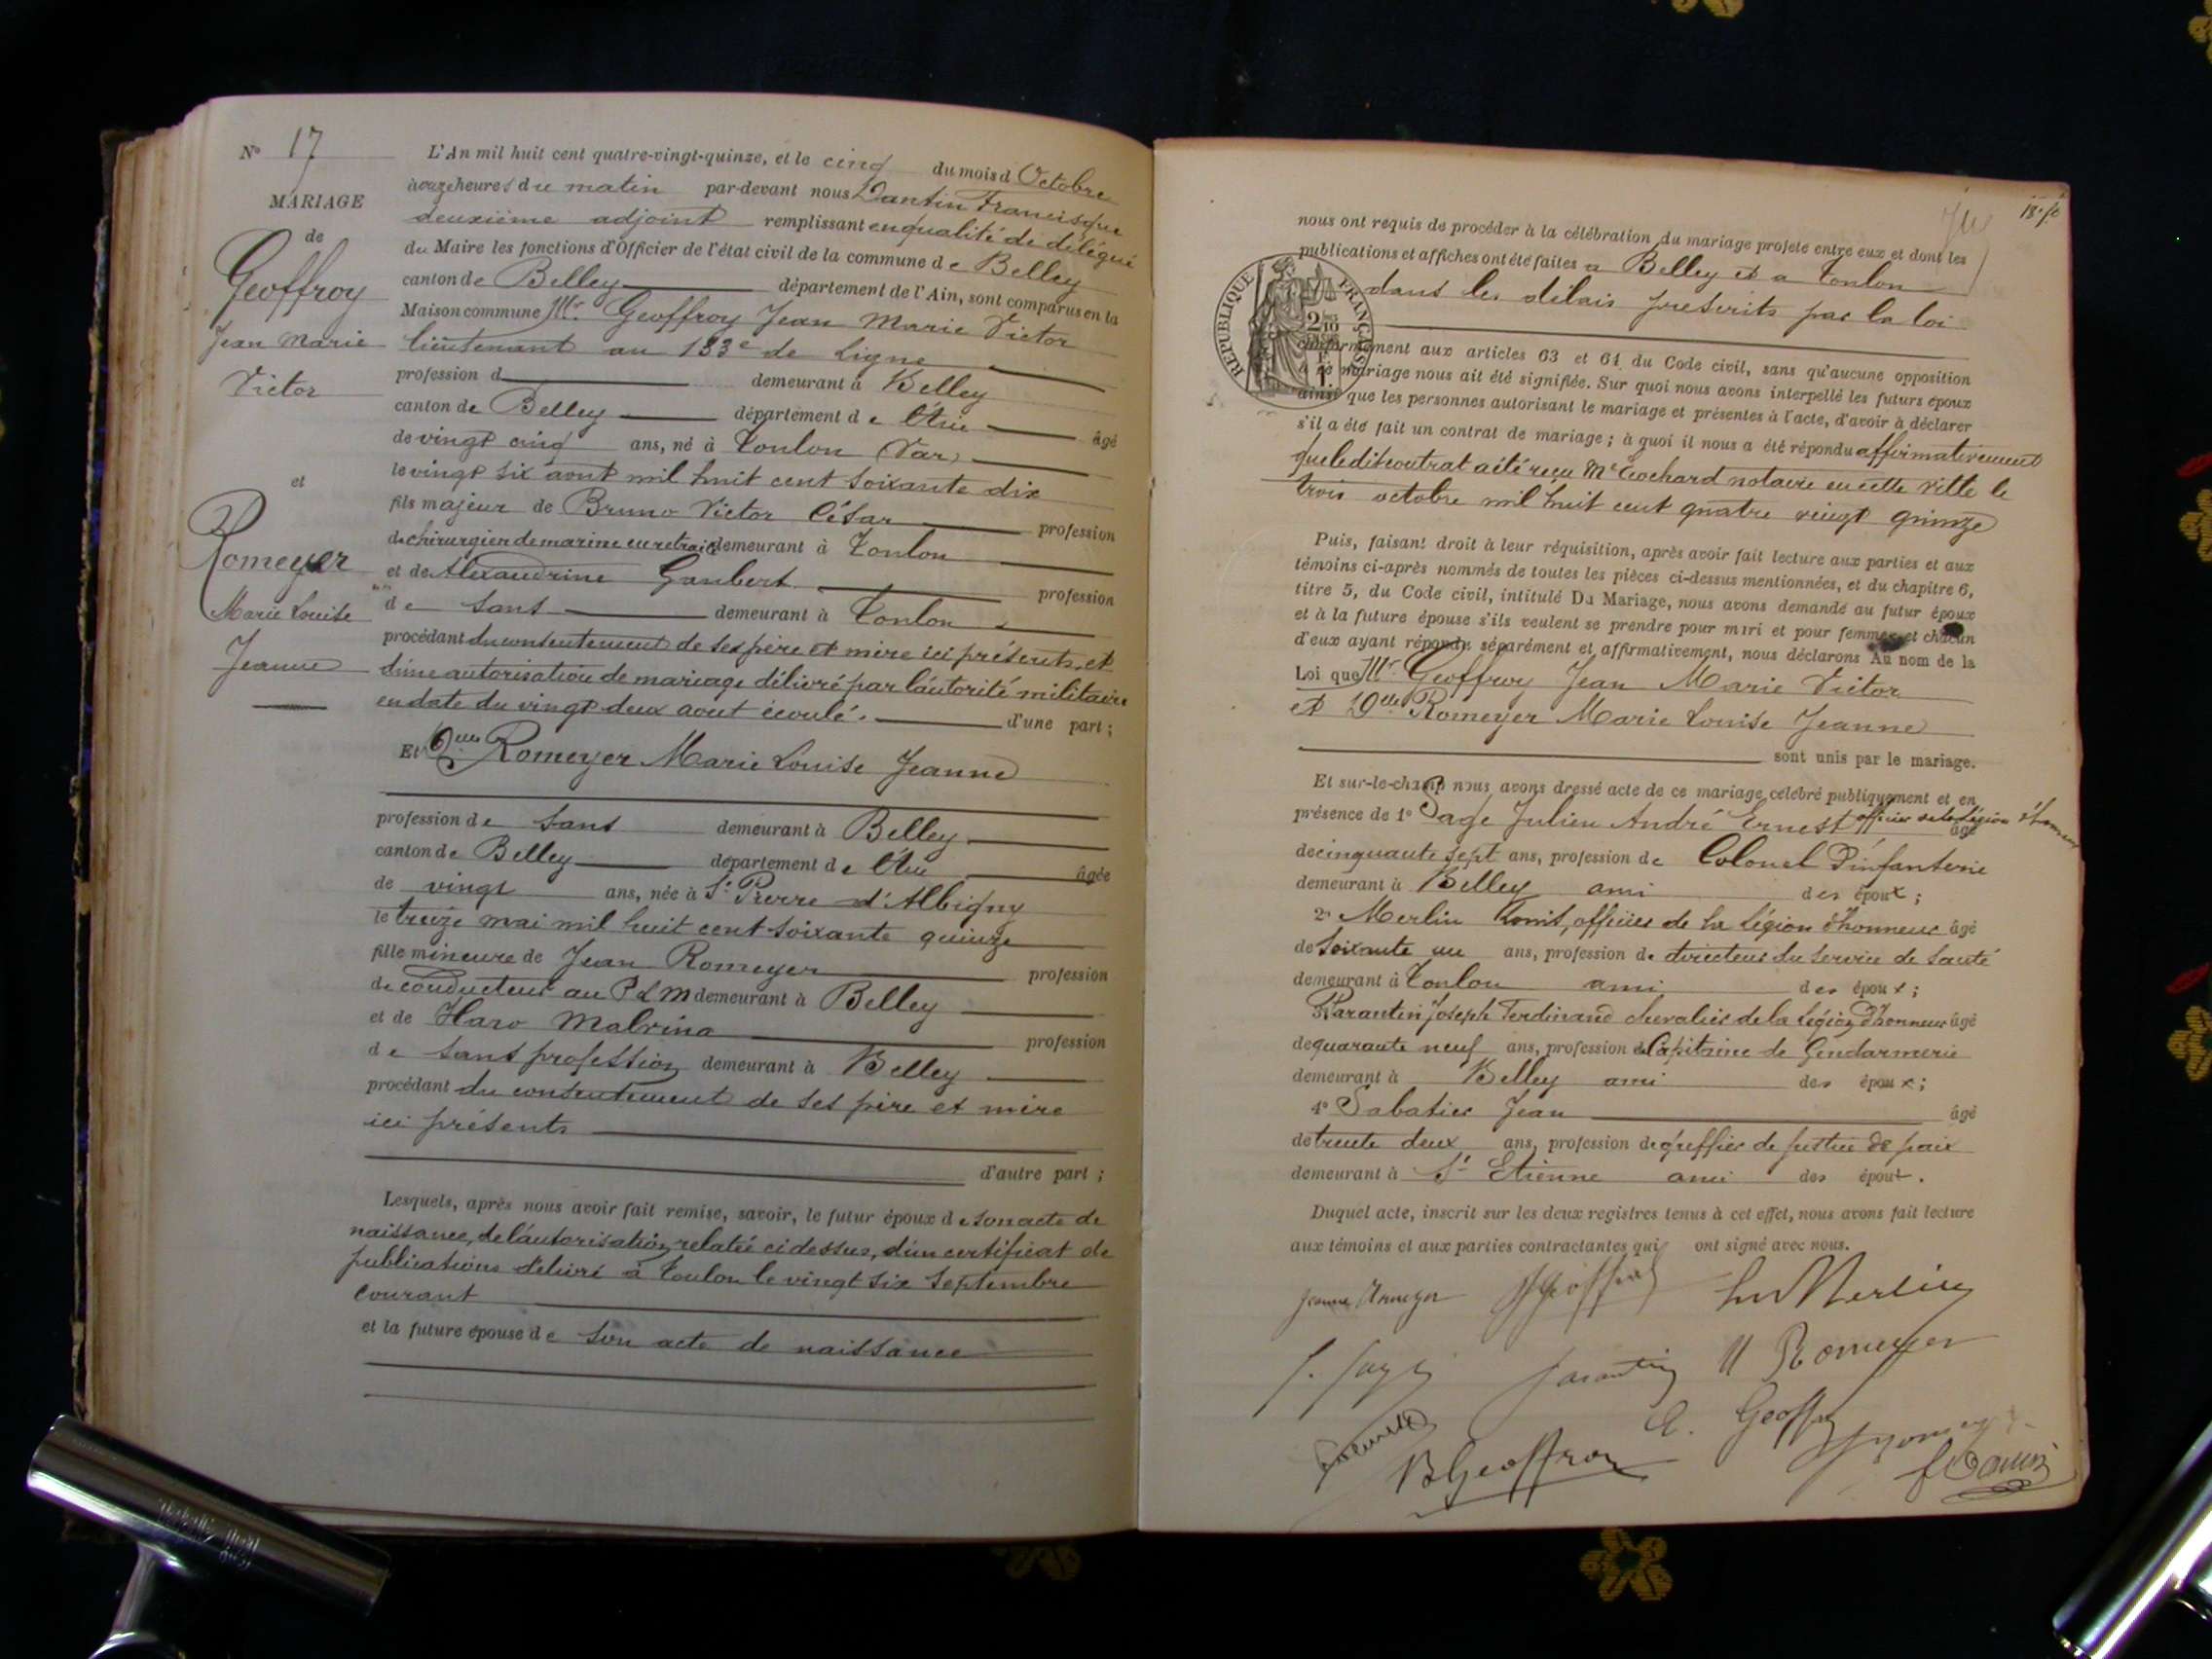 N° 17
MARIAGE
de
Geoffroy
Jean Marie
Victor
et
Romeyer
Marie Louise
Jeanne
L'An mil huit cent quatre-vingt-quinze, et le cinq du mois d Octobre
à onze heures du matin par-devant nous Dantin Francisque
deuxième adjoint remplissant en qualité de délégué
du Maire les fonctions d'Officier de l'état civil de la commune de Belley
canton de Belley département de l'Ain, sont comparus en la
Maison commune Mr. Geoffroy Jean Marie Victor
lieutenant au 133e de Ligne
profession d demeurant à Belley
canton de Belley département de l'Ain âgé
de vingt cinq ans, né à Toulon (Var)
le vingt six août mil huit cent soixante dix
fils majeur de Bruno Victor César profession
de chirurgien de marine en retraite demeurant à Toulon
et de Alexandrine Gaubert profession
de sans demeurant à Toulon
procédant du consentement de ses père et mère ici présents, et
d'une autorisation de mariage délivré par l'autorité militaire
en date du vingt deux aout écoulé. d'une part ;
Et Dlle Romeyer Marie Louise Jeanne
profession de sans demeurant à Belley
canton de Belley département de l'Ain âgée
de vingt ans, née à St Pierre d'Albigny
le treize mai mil huit cent soixante quinze
fille mineure de Jean Romeyer profession
de conducteur au P L M demeurant à Belley
et de Haro Malvina profession
de sans profession demeurant à Belley
procédant du consentement de ses père et mère
ici présents
d'autre part ;
Lesquels, après nous avoir fait remise, savoir, le futur époux de son acte de
naissance, de l'autorisation relatée ci dessus, d'un certificat de
publications délivré à Toulon le vingt six Septembre
courant
et la future épouse de son acte de naissance
nous ont requis de procéder à la célébration du mariage projeté entre eux et dont les
publications et affiches ont été faites a Belley et a Toulon
dans les délais prescrits par la loi
RÉPUBLIQUE FRANÇAISE
conformément aux articles 63 et 64 du Code civil, sans qu'aucune opposition
à ce mariage nous ait été signifiée. Sur quoi nous avons interpellé les futurs époux
ainsi que les personnes autorisant le mariage et présentes à l'acte, d'avoir à déclarer
s'il a été fait un contrat de mariage ; à quoi il nous a été répondu affirmativement
que le dit contrat a été reçu Me Trochard notaire en cette ville le
trois octobre mil huit cent quatre vingt quinze
Puis, faisant droit à leur réquisition, après avoir fait lecture aux parties et aux
témoins ci-après nommés de toutes les pièces ci-dessus mentionnées, et du chapitre 6,
titre 5, du Code civil, intitulé Du Mariage, nous avons demandé au futur époux
et à la future épouse s'ils veulent se prendre pour mari et pour femme et chacun
d'eux ayant répondu séparément et affirmativement, nous déclarons Au nom de la
Loi que Mr Geoffroy Jean Marie Victor
et Dlle Romeyer Marie Louise Jeanne
sont unis par le mariage.
Et sur-le-champ nous avons dressé acte de ce mariage célébré publiquement et en
présence de 1° Sage Julien André Ernest officier de la légion d'honneur âgé
de cinquante sept ans, profession de Colonel d'infanterie
demeurant à Belley ami des époux ;
2° Merlin Louis, officier de la légion d'honneur âgé
de soixante un ans, profession de directeur du service de santé
demeurant à Toulon ami des époux ;
3° Parantin Joseph Ferdinand chevalier de la légion d'honneur âgé
de quarante neuf ans, profession de Capitaine de Gendarmerie
demeurant à Belley ami des époux ;
4° Sabatier Jean âgé
de trente deux ans, profession de greffier de justice de paix
demeurant à St Etienne ami des époux.
Duquel acte, inscrit sur les deux registres tenus à cet effet, nous avons fait lecture
aux témoins et aux parties contractantes qui ont signé avec nous.
Jeanne Romeyer Geoffroy Merlin
J. Sage Parantin M Romeyer
E. Geoffroy
B Geoffroy